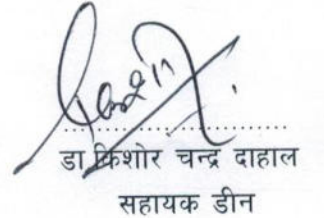 डा किशोर चन्द्र दाहाल
सहायक डीन